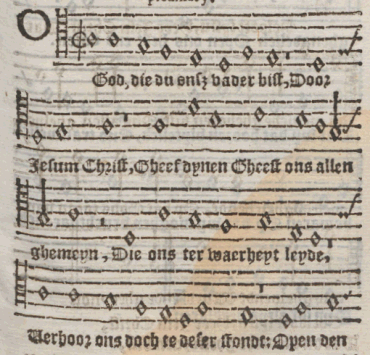 O
God, die du onsz vader bist, Door
Jesum Christ, Gheef dynen Gheest ons allen
ghemeyn, Die ons ter waerheyt leyde,
Verhoor ons doch te deser stondt: Open den